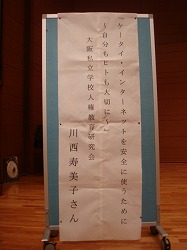 「ケータイ・インターネットを安全に使うために
～自分もヒトも大切に～」
大阪私立学校人権教育研究会
川西寿美子さん